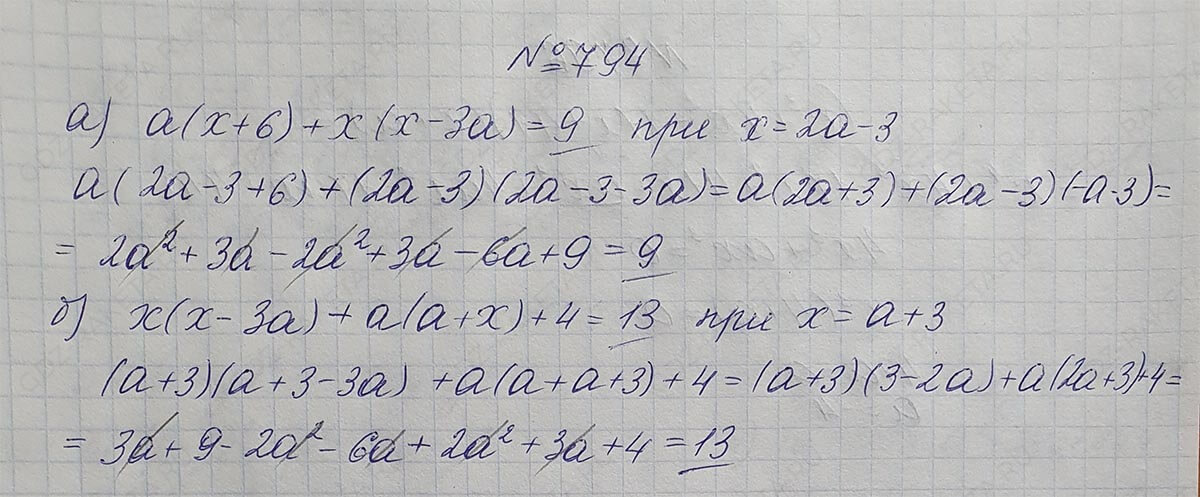 №794
а) a(x+6)+x(x-3a)=9 при x=2a-3
a(2a-3+6)+(2a-3)(2a-3-3a)=a(2a+3)+(2a-3)(-a-3)=
= 2a²+3a-2a²+3a-6a+9=9
б) x(x-3a)+a(a+x)+4=13 при x=a+3
(a+3)(a+3-3a)+a(a+a+3)+4=(a+3)(3-2a)+a(2a+3)+4=
= 3a+9-2a²-6a+2a²+3a+4=13